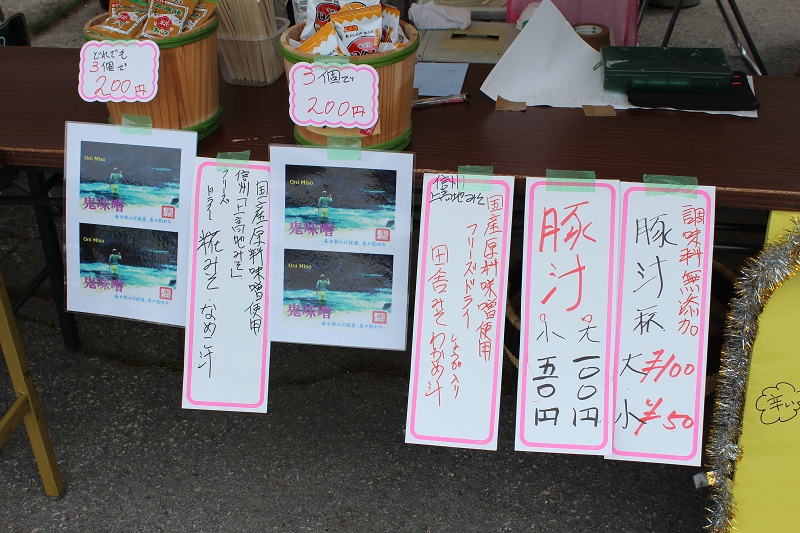 どれでも
3個で
200円
3個で
200円
Oni Miso
鬼味噌
Oni Miso
鬼味噌
国産原料味噌使用
信州「上高地みそ」
フリーズドライ
糀みそ なめこ汁
Oni Miso
鬼味噌
Oni Miso
鬼味噌
信州
上高地みそ
国産原料味噌使用
フリーズドライ
しょうが入り
田舎みそ わかめ汁
豚汁
大 一〇〇円
小 五〇円
調味料無添加
豚汁 一杯
大 ¥100
小 ¥50
辛い